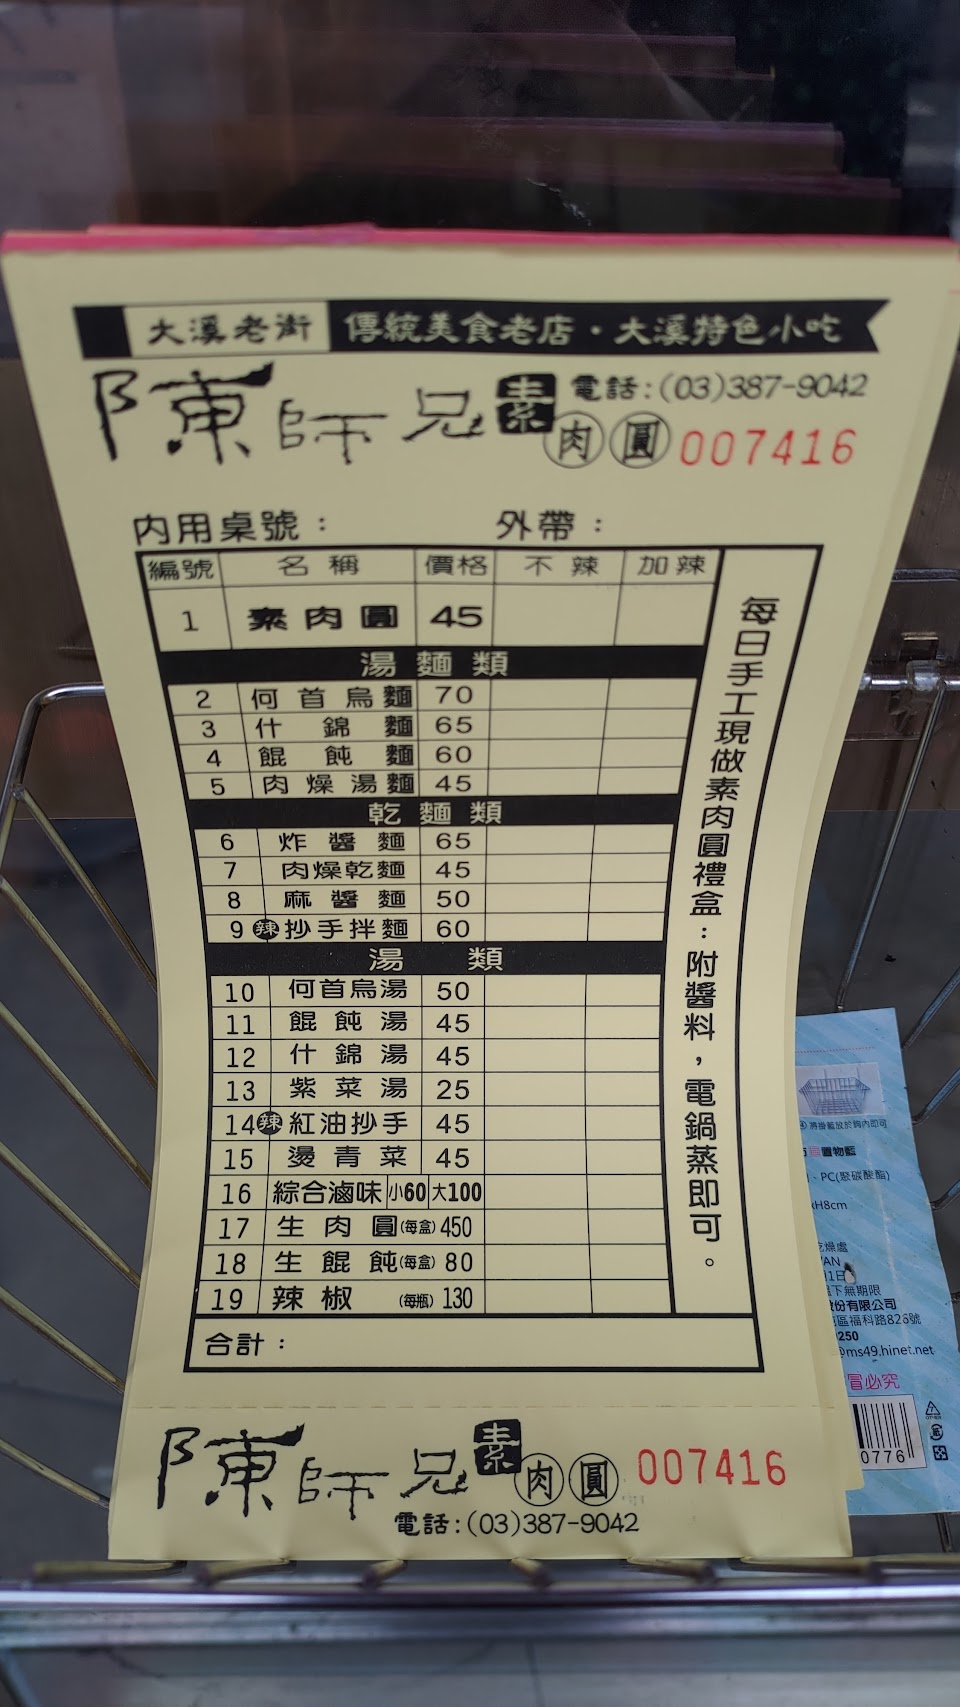 大溪老街 傳統美食老店・大溪特色小吃
陳師兄素肉圓
電話:(03)387-9042
007416
內用桌號： 外帶：
編號 名稱 價格 不辣 加辣
1 素肉圓 45
湯麵類
2 何首烏麵 70
3 什錦麵 65
4 餛飩麵 60
5 肉燥湯麵 45
乾麵類
6 炸醬麵 65
7 肉燥乾麵 45
8 麻醬麵 50
9 辣 抄手拌麵 60
湯類
10 何首烏湯 50
11 餛飩湯 45
12 什錦湯 45
13 紫菜湯 25
14 辣 紅油抄手 45
15 燙青菜 45
16 綜合滷味 小60 大100
17 生肉圓(每盒) 450
18 生餛飩(每盒) 80
19 辣椒 (每瓶) 130
合計：
每日手工現做素肉圓禮盒：附醬料，電鍋蒸即可。
陳師兄素肉圓
007416
電話:(03)387-9042
將掛籃放於鍋內即可
置物籃
PC(聚碳酸酯)
H8cm
燥處
下無期限
份有限公司
區福科路826號
@ms49.hinet.net
冒必究
0776